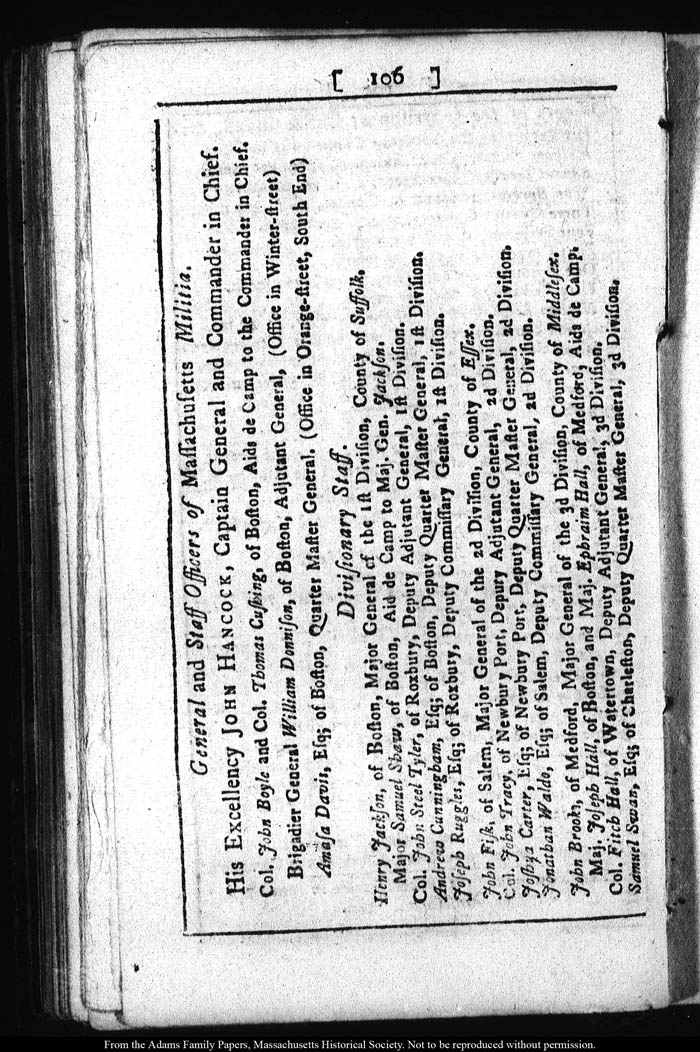 [ 106 ]
General and Staff Officers of Maſſachuſetts Militia.
His Excellency JOHN HANCOCK, Captain General and Commander in Chief.
Col. John Boyle and Col. Thomas Cuſhing, of Boſton, Aids de Camp to the Commander in Chief.
Brigadier General William Donniſon, of Boſton, Adjutant General, (Office in Winter-ſtreet)
Amaſa Davis, Eſq; of Boſton, Quarter Maſter General. (Office in Orange-ſtreet, South End)
Diviſionary Staff.
Henry Jackſon, of Boſton, Major General of the 1ſt Diviſion, County of Suffolk.
Major Samuel Shaw, of Boſton, Aid de Camp to Maj. Gen. Jackſon.
Col. John Steel Tyler, of Roxbury, Deputy Adjutant General, 1ſt Diviſion.
Andrew Cunningham, Eſq; of Boſton, Deputy Quarter Maſter General, 1ſt Diviſion.
Joſeph Ruggles, Eſq; of Roxbury, Deputy Commiſſary General, 1ſt Diviſion.
John Fiſk, of Salem, Major General of the 2d Diviſion, County of Eſſex.
Col. John Tracy, of Newbury Port, Deputy Adjutant General, 2d Diviſion.
Joſhua Carter, Eſq; of Newbury Port, Deputy Quarter Maſter General, 2d Diviſion.
Jonathan Waldo, Eſq; of Salem, Deputy Commiſſary General, 2d Diviſion.
John Brooks, of Medford, Major General of the 3d Diviſion, County of Middleſex.
Maj. Joſeph Hall, of Boſton, and Maj. Ephraim Hall, of Medford, Aids de Camp.
Col. Fitch Hall, of Watertown, Deputy Adjutant General, 3d Diviſion.
Samuel Swan, Eſq; of Charleſton, Deputy Quarter Maſter General, 3d Diviſion.
From the Adams Family Papers, Massachusetts Historical Society. Not to be reproduced without permission.